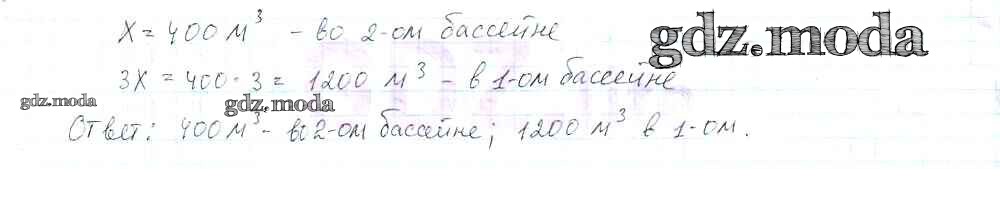 x = 400 м³ - во 2-ом бассейне
gdz.moda
3x = 400 · 3 = 1200 м³ - в 1-ом бассейне
gdz.moda
gdz.moda
Ответ: 400 м³ - во 2-ом бассейне; 1200 м³ в 1-ом.